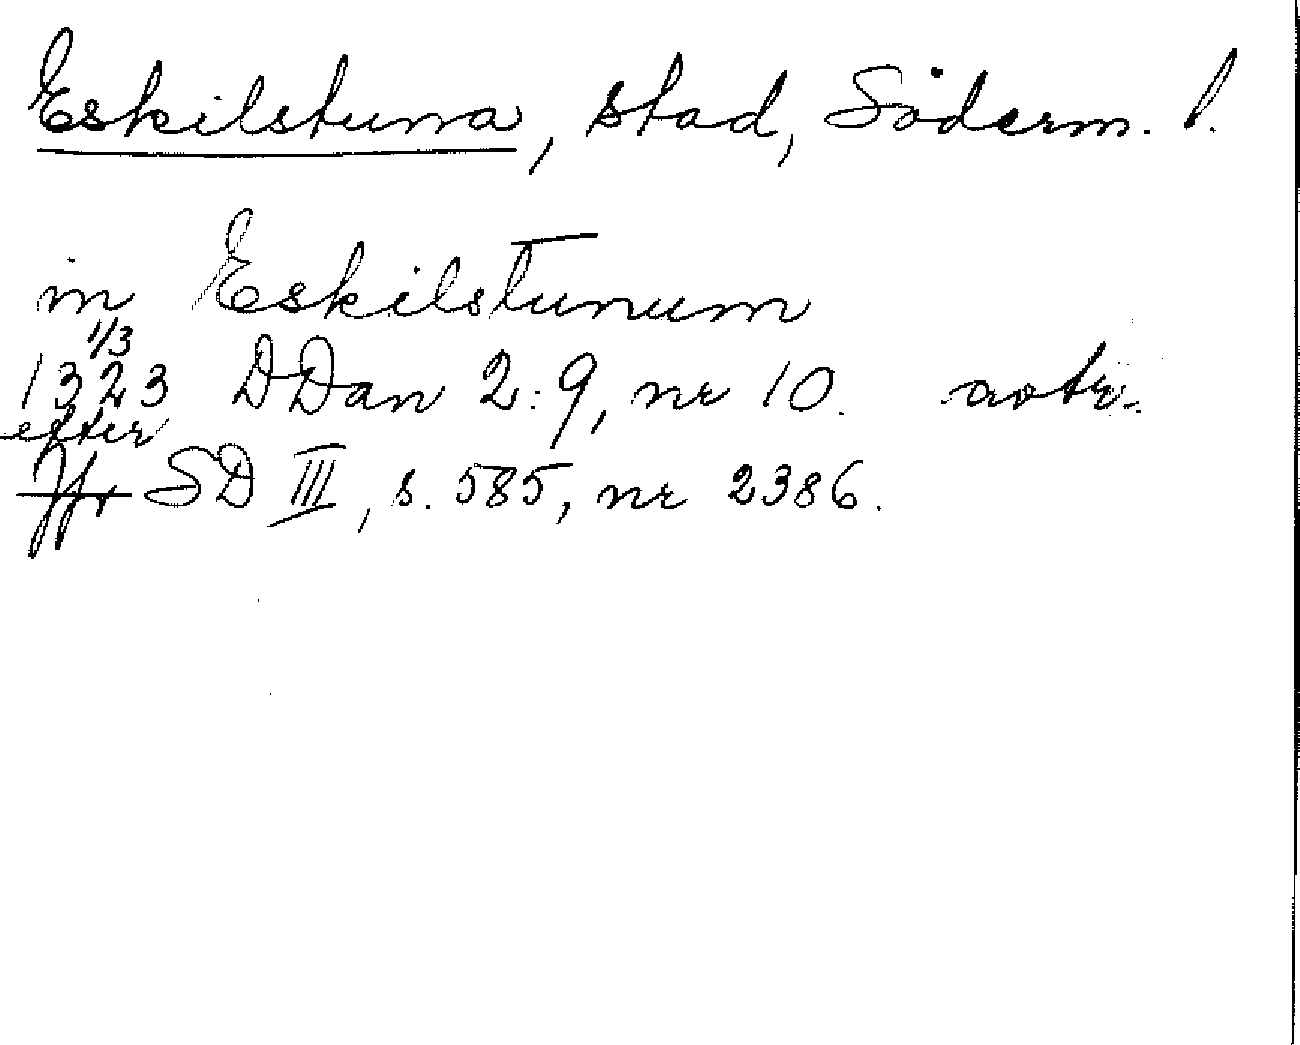 Eskilstuna, stad, Söderm. l.
in Eskilstunum
1/3
1323 DDan 2:9, nr 10. avtr.
efter
Jfr SD III, s. 585, nr 2386.